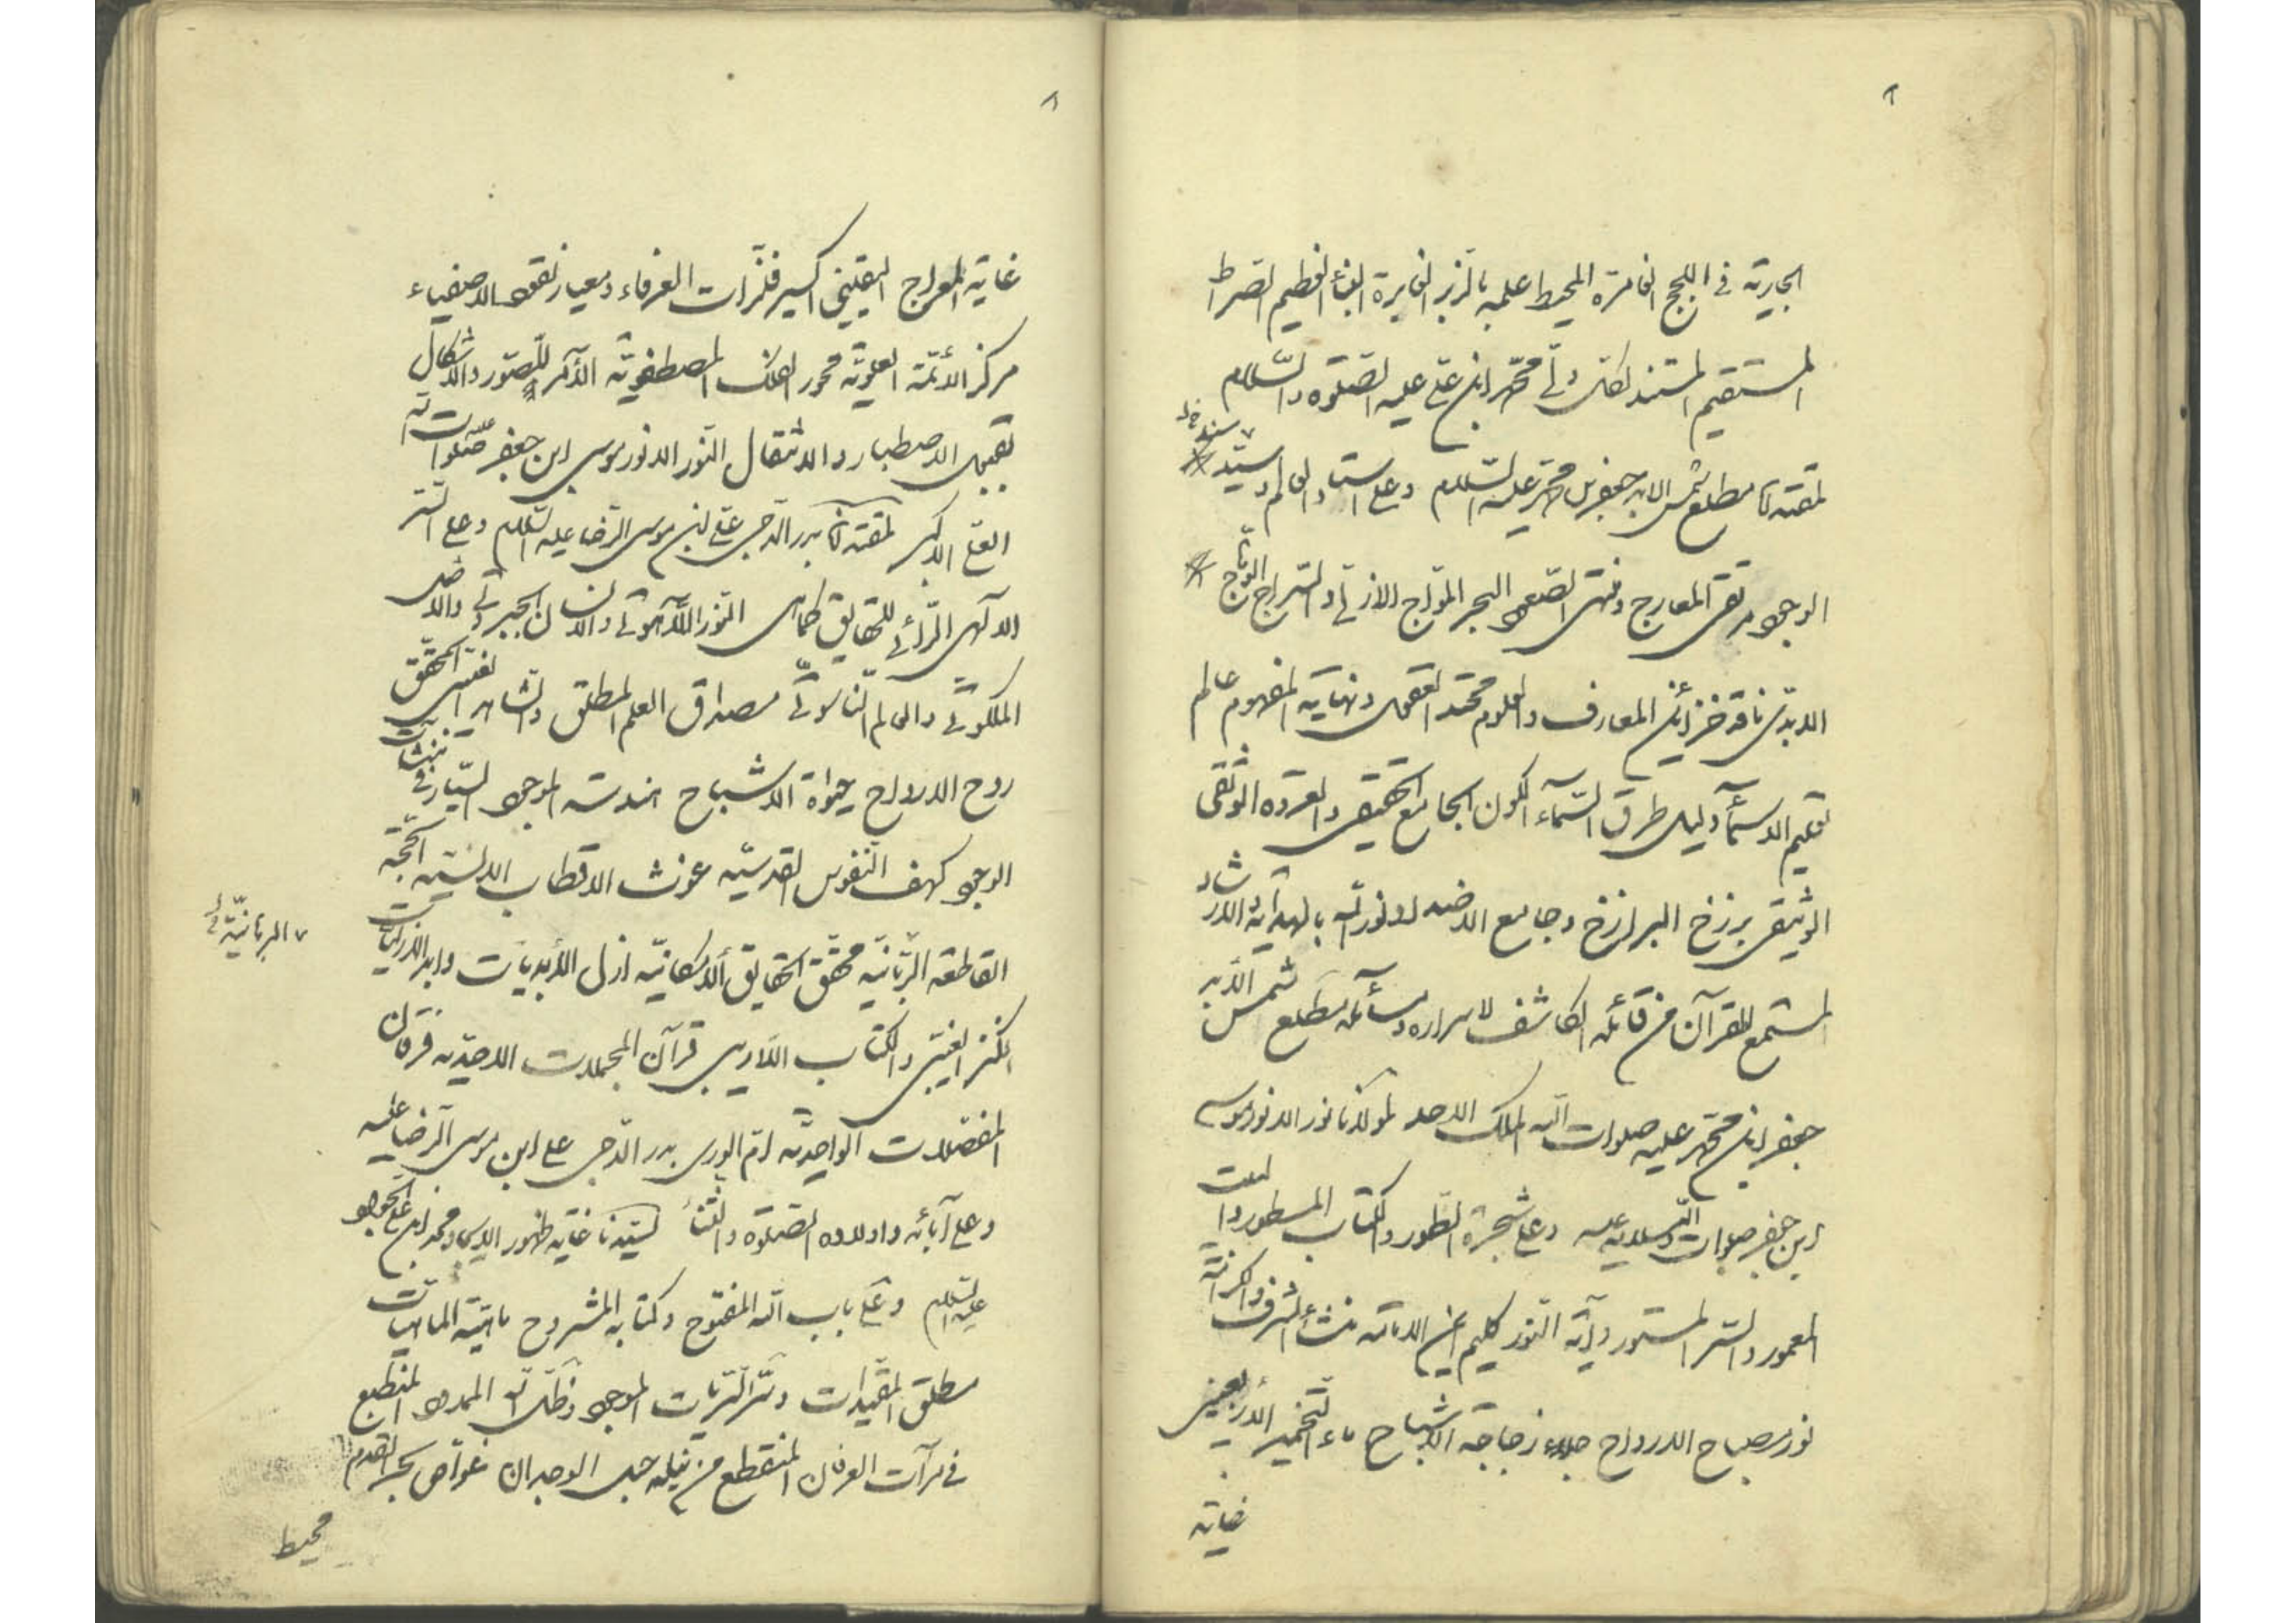 الجارية في اللجج الغامرة المحيط علمه بالزبر الغابرة النبأ العظيم الصراط
المستقيم المستند لكل ولي محمد ابن علي عليه الصلوة والسلام
مطلع شمس الابد جعفر بن محمد عليه السلام وعلى استاد العالم وسند
الوجود مرتقى المعارج ومنتهى الصعود البحر المواج الازلي والسراج الوهاج
الابدي ناقد خزائن المعارف والعلوم محتد العقول ونهاية الفهوم عالم
تعليم الاسماء دليل طرق السماء الكون الجامع الحقيقي والعروة الوثقى
الوثيقي برزخ البرازخ وجامع الاضداد نور الله بالهداية والارشاد
المستمع للقرآن من قائله الكاشف لاسراره ومسائله مطلع شمس الابد
جعفر ابن محمد عليه صلوات الله الملك الاحد لمولانا نور الانوار موسى
ابن جعفر صلوات الله وسلامه عليه وعلى شجرة الطور والكتاب المسطور والبيت
المعمور والسر المستور وآية النور كليم ايمن الامامة منشأ الشرف والكرامة
نور مصباح الارواح جلاء زجاجة الاشباح ماء التخمير الاربعيني
غاية
غاية المعراج اليقيني اكسير فلزات العرفاء ومعيار نقود الاصفياء
مركز الائمة العلوية محور الفلك المصطفوية الآمر للصور والاشكال
بقبول الاصطبار والانتقال النور الانور موسى ابن جعفر صلوات الله
العلي الاكبر بدر الدجى علي ابن موسى الرضا عليه السلام وعلى السر
الالهي الرائي للحقايق كما هي النور اللاهوتي والانسان الجبروتي والاصل
الملكوتي والعالم الناسوتي مصداق العلم المطلق والشاهد الغيبي المحقق
روح الارواح حيوة الاشباح هندسة الموجود السيار في المنشآت
الوجود كهف النفوس القدسية غوث الاقطاب الانسية الحجة
القاطعة الربانية محقق الحقايق الامكانية ازل الابديات وابد الازليات
الكنز الغيبي والكتاب اللاريبي قرآن المجملات الاحدية فرقان
المفصلات الواحدية امام الورى بدر الدجى علي ابن موسى الرضا عليه
وعلى آبائه واولاده الصلوة والثناء لسيدنا غاية ظهور الايجاد محمد ابن علي الجواد
عليه السلام وعلى باب الله المفتوح وكتابه المشروح ماهية الماهيات
مطلق المقيدات وسر السريات الموجود ظل الله الممدود المنطبع
في مرآت العرفان المنقطع من نيله حبل الوجدان غواص بحر القدم
محيط